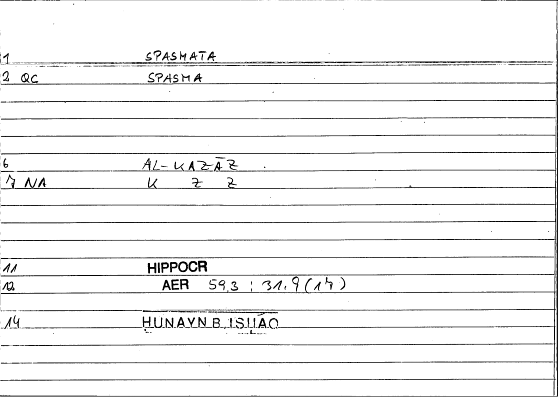 1 SPASMATA
2 QC SPASMA
6 AL-KAZĀZ
7 NA K Z Z
11 HIPPOCR
12 AER 59,3 ; 31,9 (17)
14 HUNAYN B. ISḤĀQ